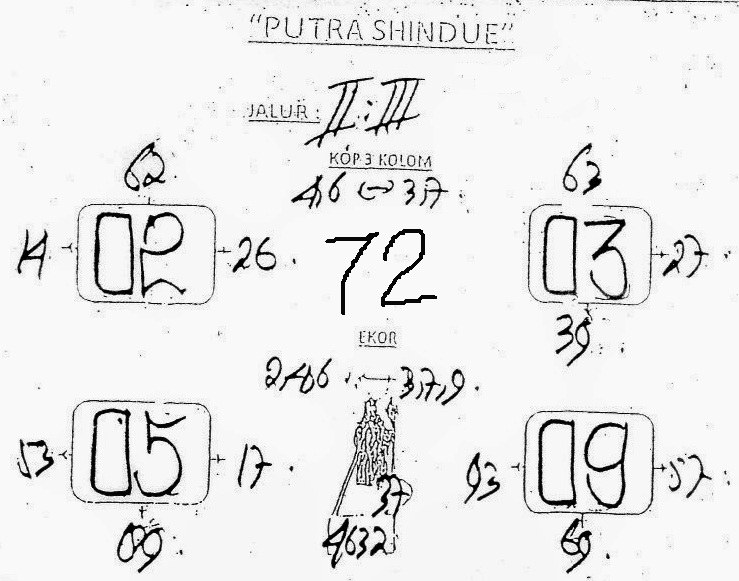 "PUTRA SHINDUE"
JALUR : II : III
KOP 3 KOLOM
4,6 ↔ 3,7.
62
14 02 26.
72
63
03 27.
39
EKOR
2,4,6 ↔ 3,7,9.
53 05 17.
09.
37
4632
93 09 57.
69.